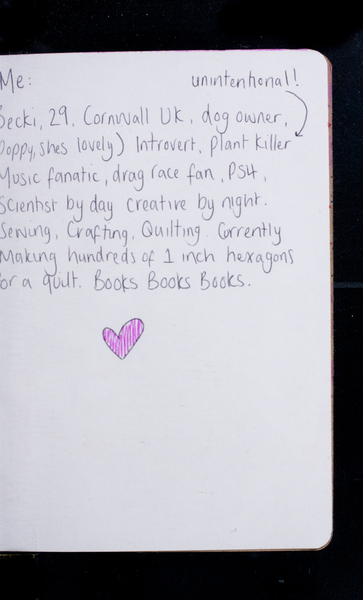 Me: unintentional!
Becki, 29, Cornwall UK, dog owner,
Poppy, shes lovely) Introvert, plant killer
Music fanatic, drag race fan, PS4,
Scientist by day creative by night.
Sewing, Crafting, Quilting. Currently
Making hundreds of 1 inch hexagons
for a quilt. Books Books Books.